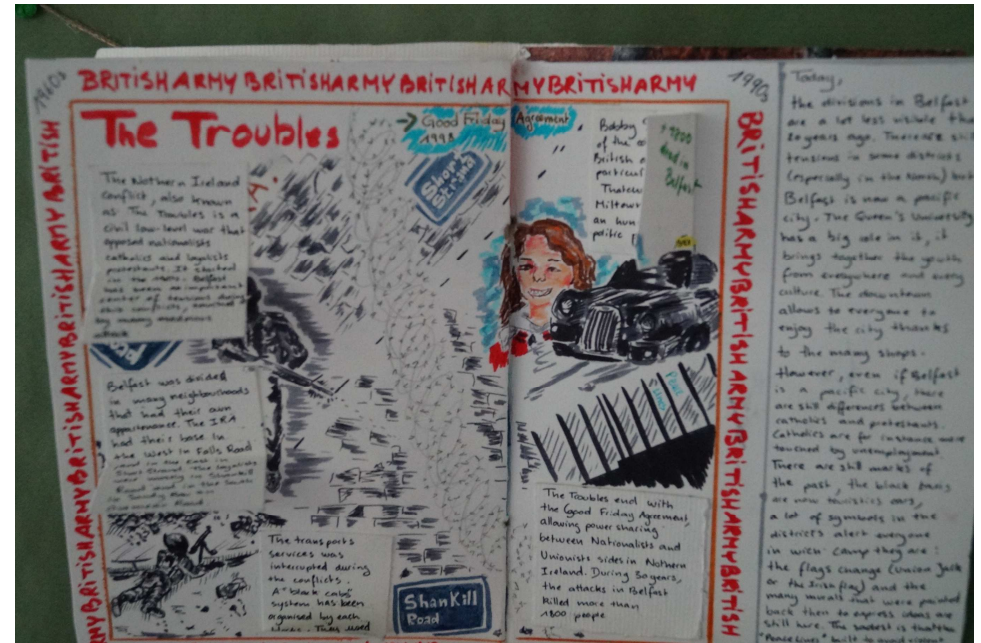 1960s
BRITISHARMY BRITISHARMY BRITISHARMYBRITISHARMY
1990s
BRITISHARMYBRITISHARMYBRITISHARMYBRITISH
BRITISHARMYBRITISHARMYBRITISHARMYBRITISH
The Troubles
→ Good Friday Agreement
1998
The Nothern Ireland
conflict, also known
as The Troubles is a
civil low-level war that
opposed nationalists
catholics and loyalists
protestants. It started
in the Belfast
has been an important
center of tensions during
this conflicts,
by many
Short
Strand
Belfast was divided
in many neighbourhoods
that had their own
appartenance. The IRA
had their base in
the West in Falls Road
and in the East in
Short Strand. The loyalists
were mainly in Shankill
Road and in the South
Sandy Row
The transports
services was
interrupted during
the conflicts.
A "black cabs"
system has been
organised by each
They used
Shankill
Road
Bobby
of the
British a
particul
Thatch
Milltow
an hun
politic
dead in
Belfast
Peace
Lines
The Troubles end with
the Good Friday Agreement,
allowing power sharing
between Nationalists and
Unionists sides in Nothern
Ireland. During 30 years,
the attacks in Belfast
killed more than
1800 people
Today,
the divisions in Belfast
are a lot less visible than
20 years ago. There are still
tensions in some districts
(especially in the North) but
Belfast is now a pacific
city. The Queen's University
has a big role in it, it
brings together the youth
from everywhere and every
culture. The downtown
allows to everyone to
enjoy the city thanks
to the many shops.
However, even if Belfast
is a pacific city, there
are still differences between
catholics and protestants.
Catholics are for instance more
touched by unemployment
There are still marks of
the past, the black taxis
are now touristics cars,
a lot of symbols in the
districts alert everyone
in wich camp they are:
the flags change (Union Jack
or the Irish flag) and the
many murals that were painted
back then to express ideas are
still here. The saddest is that the
"Peace Lines"